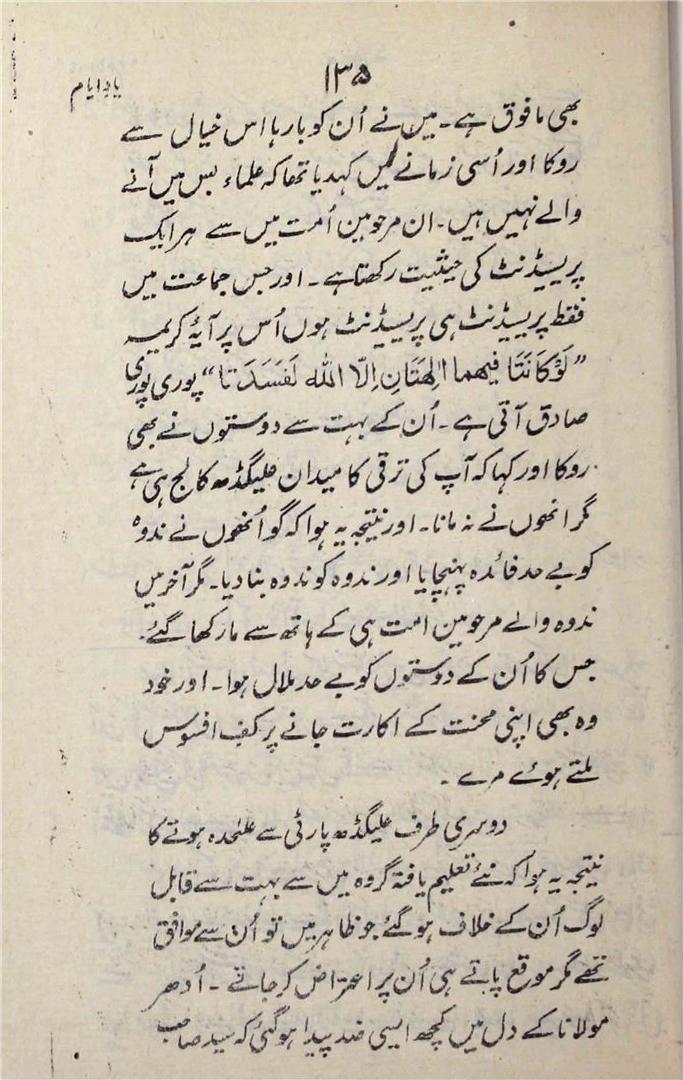 ۱۳۵
یادِ ایام
بھی مافوق ہے۔ میں نے اُن کو بارہا اس خیال سے
روکا اور اُسی زمانے میں کہدیا تھا کہ علماء بس میں آنے
والے نہیں ہیں۔ ان مرحومین اُمت میں سے ہر ایک
پریسیڈنٹ کی حیثیت رکھتا ہے۔ اور جس جماعت میں
فقط پریسیڈنٹ ہی پریسیڈنٹ ہوں اُس پر آیۂ کریمہ
”لَوْکَانَتَا فیھما الِھَتَانِ اِلّا اللہ لَفَسَدَتا“ پوری پوری
صادق آتی ہے۔ اُن کے بہت سے دوستوں نے بھی
روکا اور کہا کہ آپ کی ترقی کا میدان علیگڈھ کالج ہی ہے
مگر انھوں نے نہ مانا۔ اور نتیجہ یہ ہوا کہ گو اُنھوں نے ندوہ
کو بے حد فائدہ پہنچایا اور ندوہ کو ندوہ بنا دیا۔ مگر آخر میں
ندوہ والے مرحومین امت ہی کے ہاتھ سے مار کھا گئے۔
جس کا اُن کے دوستوں کو بے حد ملال ہوا۔ اور خود
وہ بھی اپنی محنت کے اکارت جانے پر کفِ افسوس
ملتے ہوئے مرے۔
دوسری طرف علیگڈھ پارٹی سے علٰحدہ ہونے کا
نتیجہ یہ ہوا کہ نئے تعلیم یافتہ گروہ میں سے بہت سے قابل
لوگ اُن کے خلاف ہو گئے جو ظاہر میں تو اُن سے موافق
تھے مگر موقع پاتے ہی اُن پر اعتراض کر جاتے۔ اُدھر
مولانا کے دل میں کچھ ایسی ضد پیدا ہو گئی کہ سید صاحب